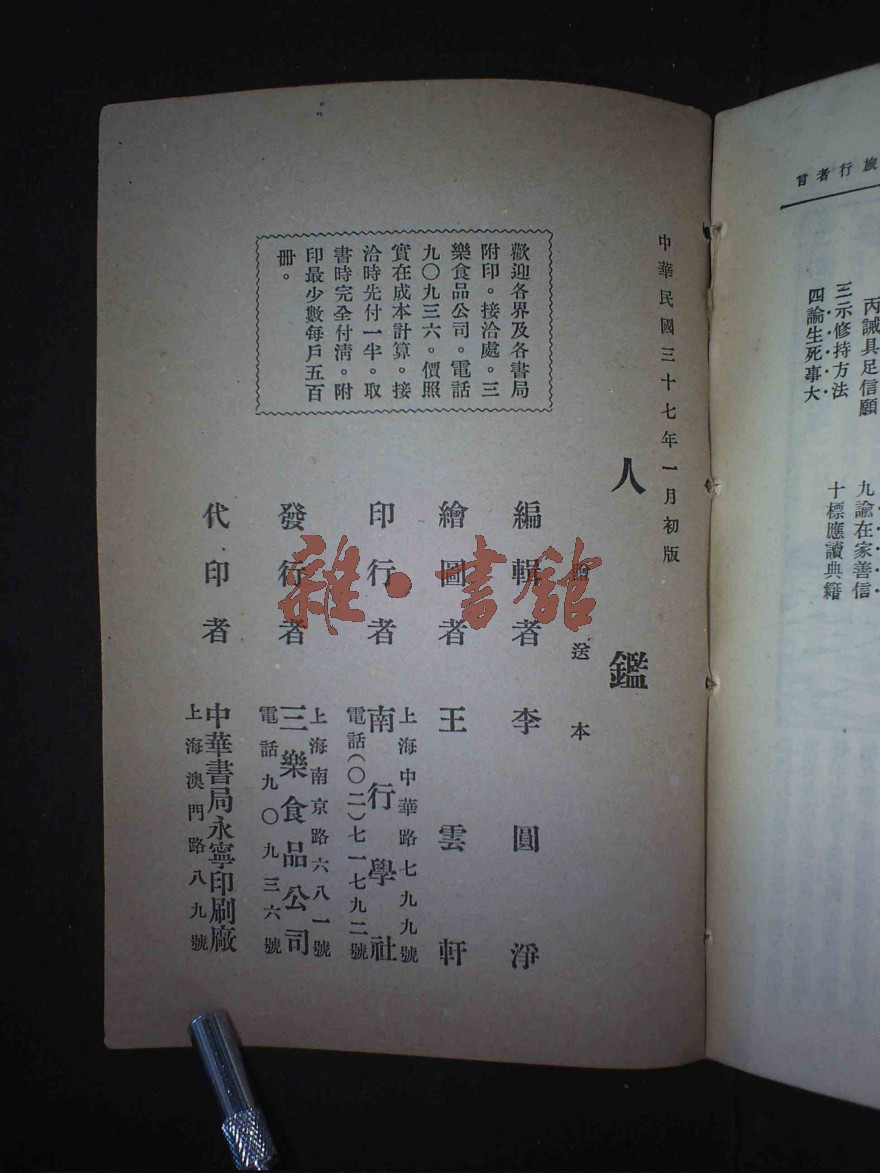 旅行者言
丙誡具足信願
三示修持方法
四論生死事大
九諭在家善信
十標應讀典籍
中華民國三十七年一月初版
人鑑
贈送本
編輯者 李圓淨
繪圖者 王雲軒
印行者 南行學社
上海中華路七九九號
電話(〇二)七一七九二號
發行者 三樂食品公司
上海南京路六八一號
電話九〇九三六號
代印者 中華書局永寧印刷廠
上海澳門路八九號
歡迎各界及各書局
附印。接洽處。三
樂食品公司。電話
九〇九三六。價照
實在成本計算。接
洽時先付一半。取
書時完全付清。附
印最少數每戶五百
冊。
雜·書館